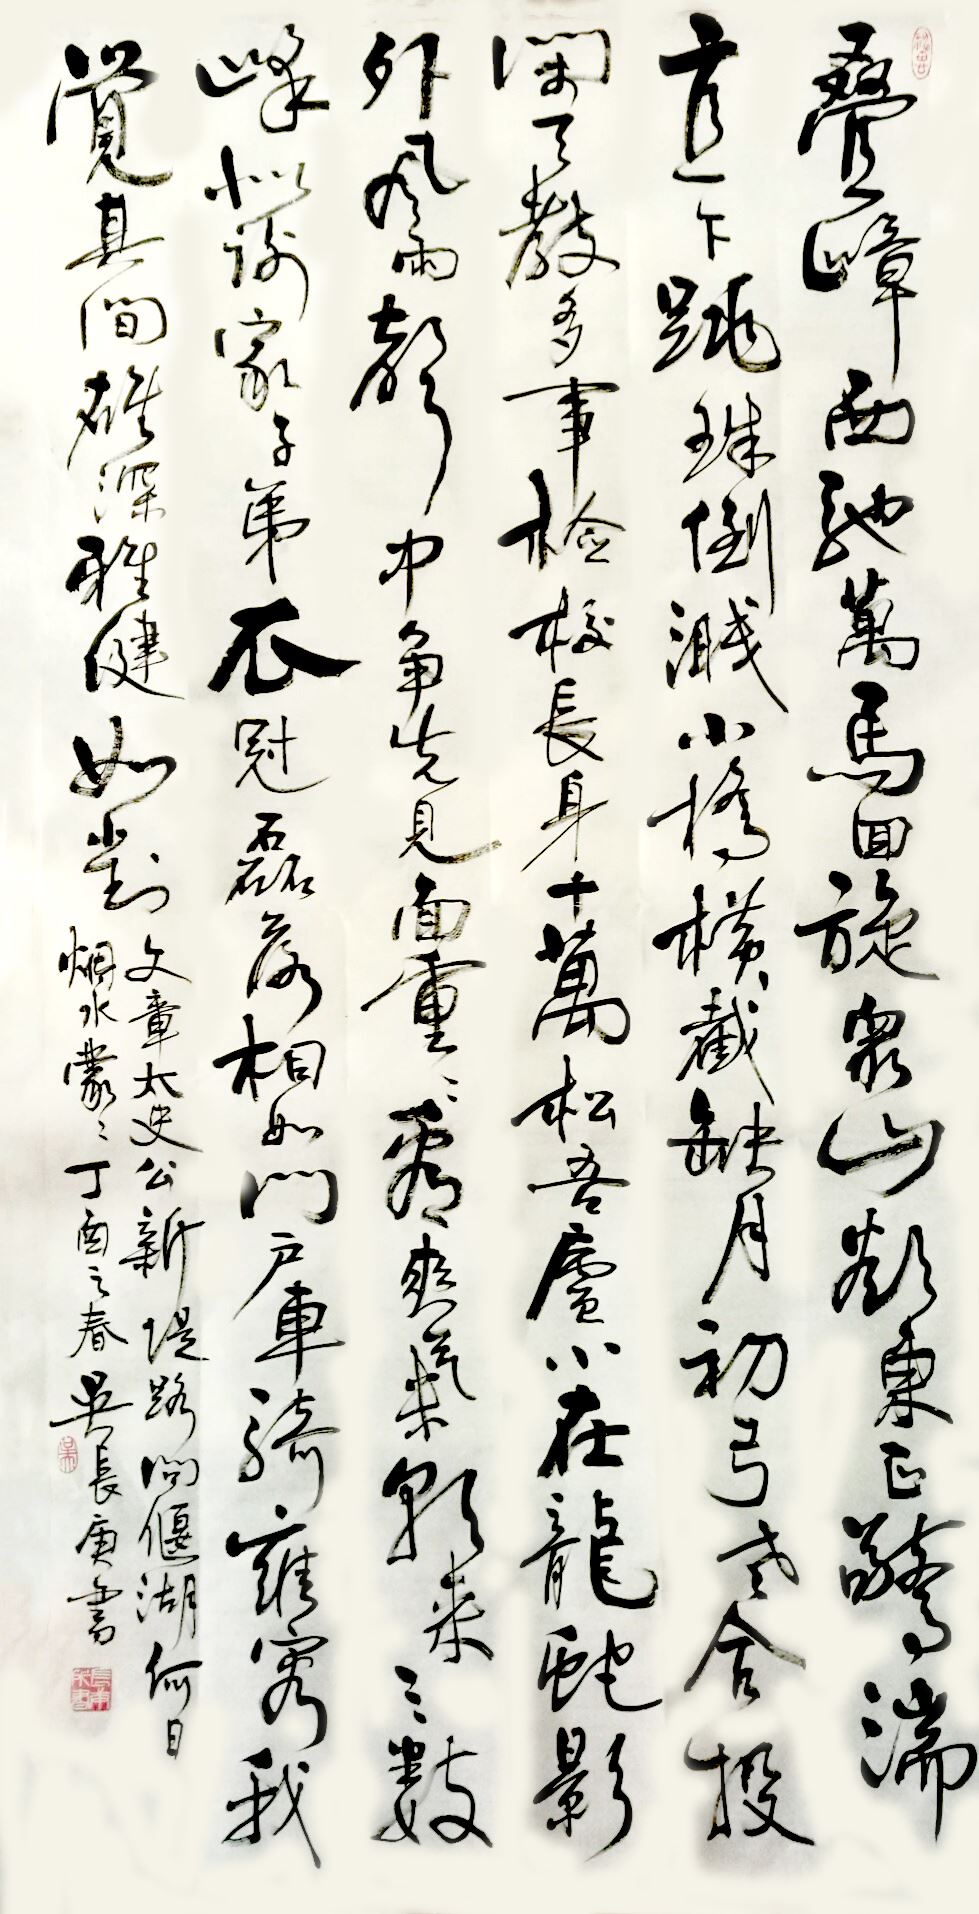 疊嶂西馳萬馬回旋衆山欲東正驚湍
直下跳珠倒濺小橋橫截缺月初弓老合投
閑天教多事檢校長身十萬松吾廬小在龍蛇影
外風雨聲中爭先見面重〻看爽氣朝來三數
峰似謝家子弟衣冠磊落相如門戶車騎雍容我
覺其間雄深雅健如對
文章太史公新堤路問偃湖何日
烟水濛〻丁酉之春吳長庚書
吳